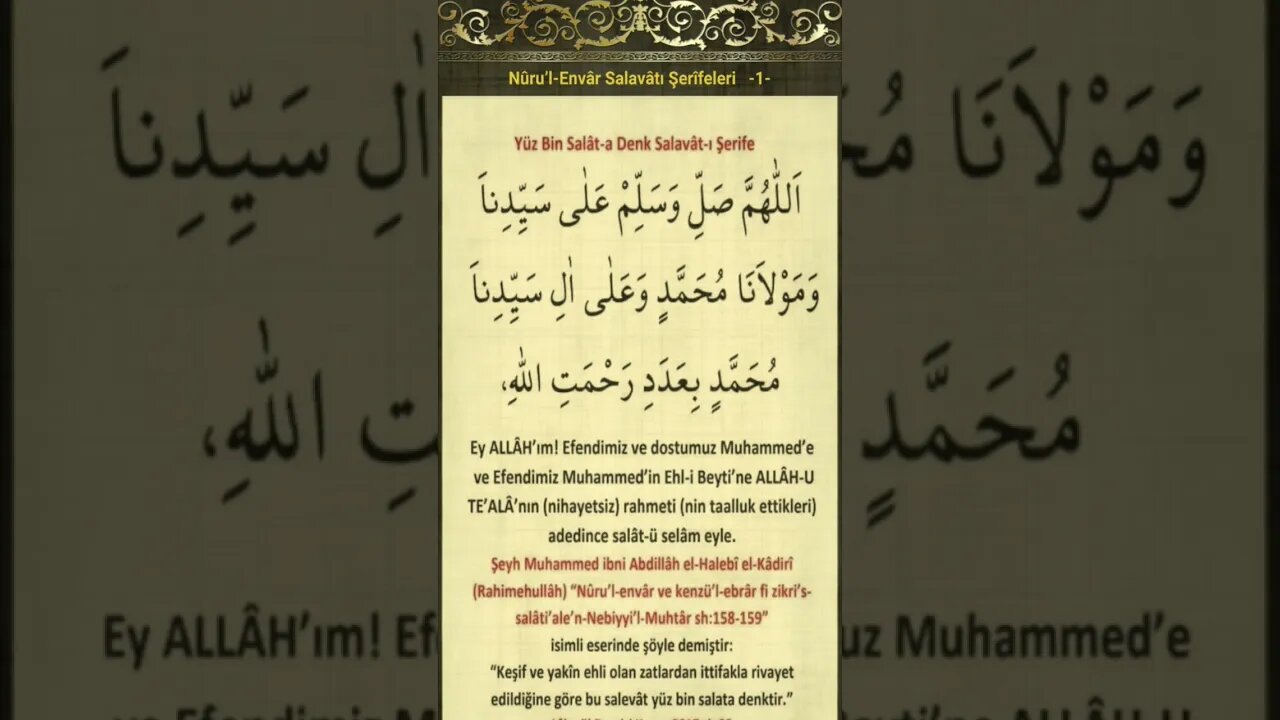 Nûru’l-Envâr Salavâtı Şerîfeleri -1-
Yüz Bin Salât-a Denk Salavât-ı Şerife
اَللّٰهُمَّ صَلِّ وَسَلِّمْ عَلٰى سَيِّدِناَ
وَمَوْلاَنَا مُحَمَّدٍ وَعَلٰى اٰلِ سَيِّدِناَ
مُحَمَّدٍ بِعَدَدِ رَحْمَتِ اللّٰهِ،
Ey ALLÂH’ım! Efendimiz ve dostumuz Muhammed’e
ve Efendimiz Muhammed’in Ehl-i Beyti’ne ALLÂH-U
TE’ALÂ’nın (nihayetsiz) rahmeti (nin taalluk ettikleri)
adedince salât-ü selâm eyle.
Şeyh Muhammed ibni Abdillâh el-Halebî el-Kâdirî
(Rahimehullâh) “Nûru’l-envâr ve kenzü’l-ebrâr fi zikri’s-
salâti’ale’n-Nebiyyi’l-Muhtâr sh:158-159”
isimli eserinde şöyle demiştir:
“Keşif ve yakîn ehli olan zatlardan ittifakla rivayet
edildiğine göre bu salevât yüz bin salata denktir.”